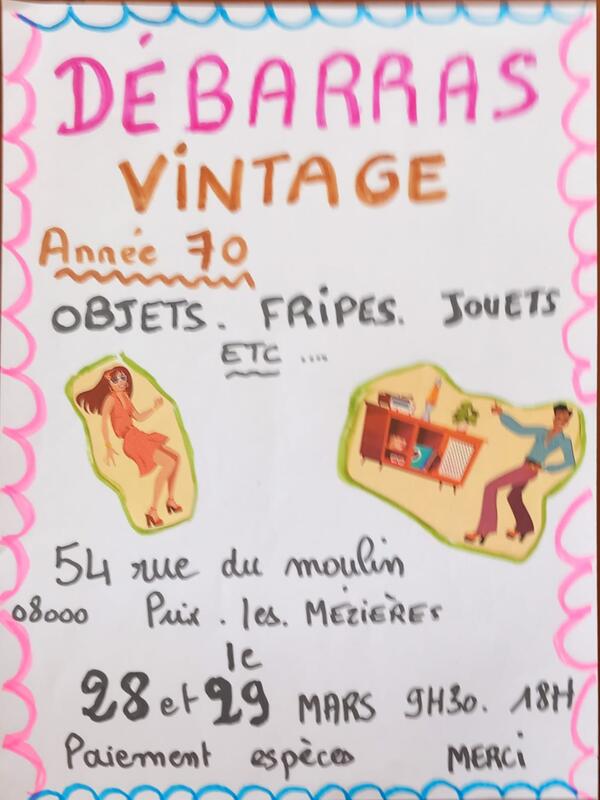 DÉBARRAS
ViNTAGE
Année 70
OBJETS. FRiPES. JOUETS
ETC ....
54 rue du moulin
08000 Prix. les. MÉZIÈRES
le
28 et 29 MARS 9H30. 18H
Paiement espèces MERCi